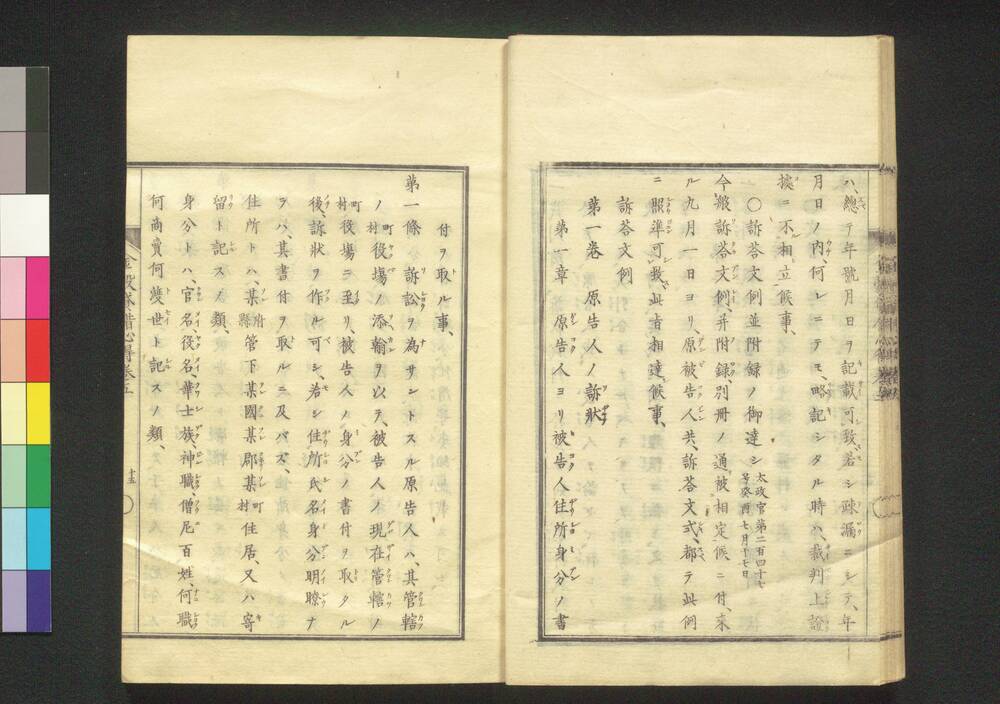 ハ、總テ年號月日ヲ記載可致、若シ疎漏ニシテ、年
月日ノ内、何レニテモ、略記シタル時ハ、裁判上證
據ニ不相立候事、
〇訴荅文例並附録ノ御達シ 太政官第二百四十七号癸酉七月十七日
今般訴荅文例、并附録、別冊ノ通被相定候ニ付、來
ル九月一日ヨリ、原被告人共、訴荅文式、都テ此例
ニ照準可致、此旨相達候事、
訴荅文例
第一卷 原告人ノ訴狀
第一章 原告人ヨリ被告人住所身分ノ書
付ヲ取ル事、
第一條 訴訟ヲ為サントスル原告人ハ、其管轄
ノ町村役場ノ添翰ヲ以テ、被告人ノ現在管轄ノ
町村役場ニ至リ、被告人ノ身分ノ書付ヲ取タル
後、訴狀ヲ作ル可シ、若シ住所氏名身分明瞭ナ
ラハ、其書付ヲ取ルニ及バズ、
住所トハ、某府縣管下某國某郡某町村住居、又ハ寄
留ト記スノ類、
身分トハ、官名、役名、華士族、神職、僧尼百姓、何職
何商賣何獎世ト記スノ類、
十五